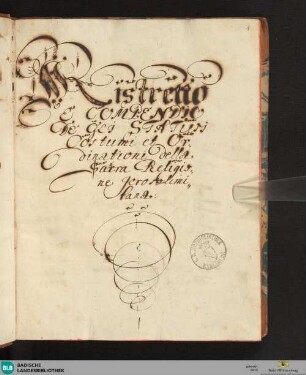 Ristretto
E COMPENDIO
DE GLI STATUTI
Costumi et Or-
dinationi della
Sacra Religio,
ne Jerosolimi,
tana.
BLB BADISCHE
LANDESBIBLIOTHEK
Baden-Württemberg